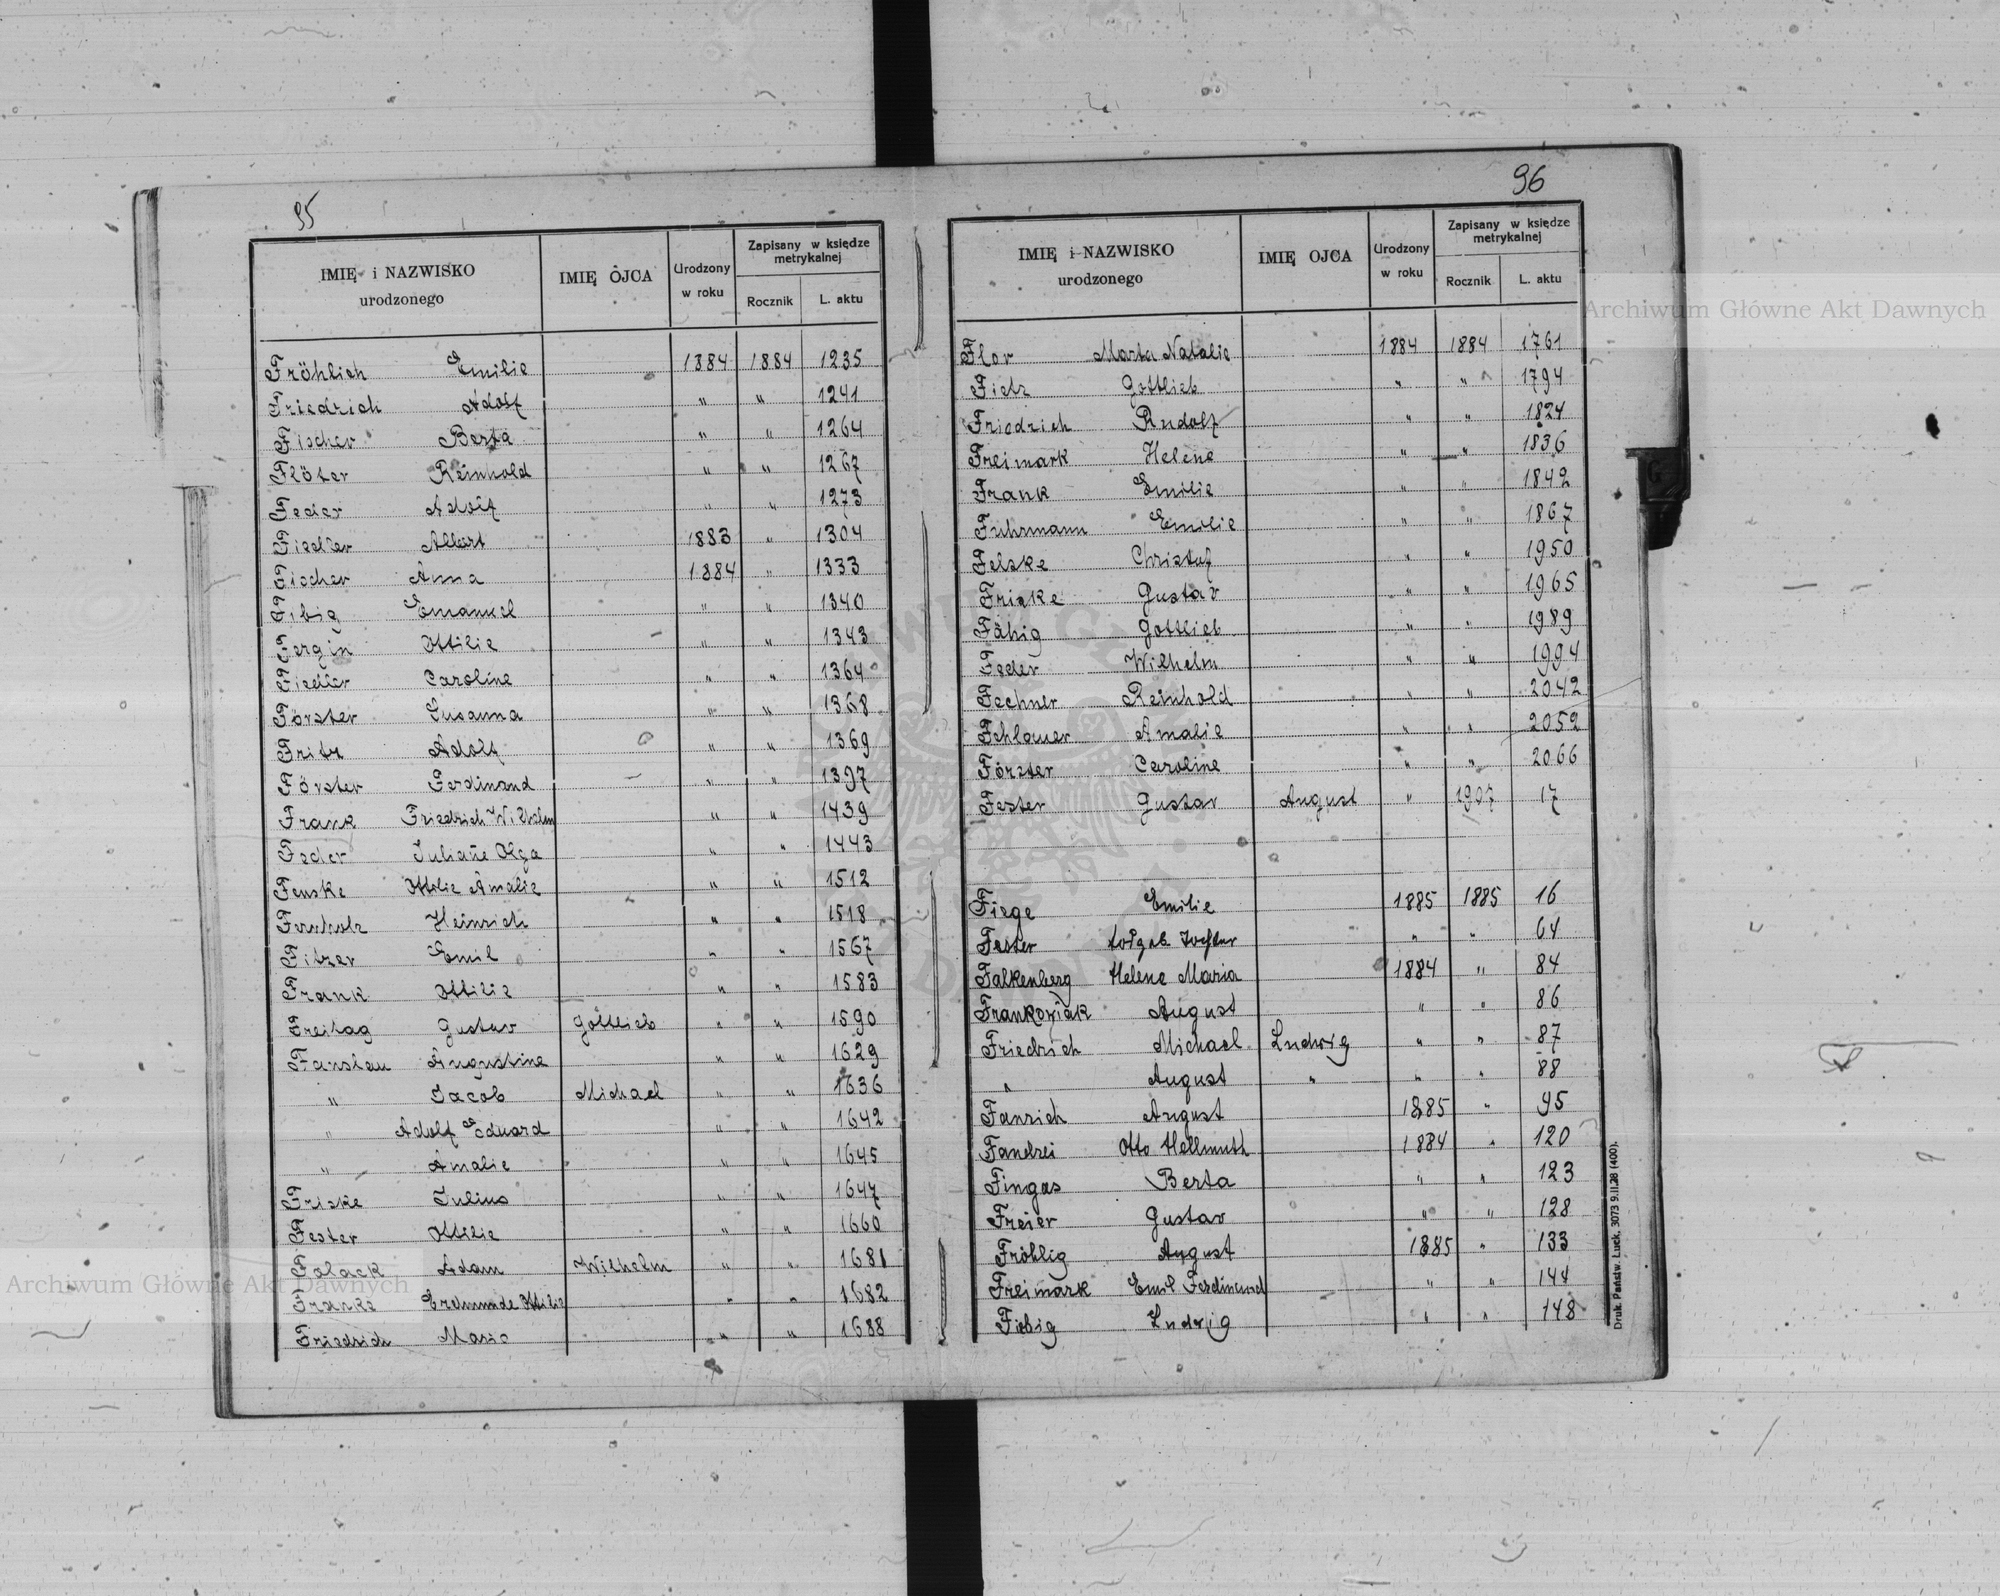 95
IMIĘ i NAZWISKO urodzonego IMIĘ OJCA Urodzony w roku Zapisany w księdze metrykalnej Rocznik L. aktu
Fröhlich Emilie 1884 1884 1235
Friedrich Adolf " " 1241
Fischer Berta " " 1264
Flöter Reinhold " " 1267
Feder Adolf " " 1273
Fiedler Albert 1883 " 1304
Fischer Anna 1884 " 1333
Fibig Emanuel " " 1340
Fergin Ottilie " " 1343
Fiedler Caroline " " 1364
Förster Susanna " " 1368
Fritz Adolf " " 1369
Förster Ferdinand " " 1397
Frank Friedrich Wilhelm " " 1439
Feder Juliane Olga " " 1443
Fenske Ottilie Amalie " " 1512
Fernholz Heinrich " " 1518
Fitzer Emil " " 1567
Frank Ottilie " " 1583
Freitag Gustav Gottlieb " " 1590
Fanslau Augustine " " 1629
" Jacob Michael " " 1636
" Adolf Eduard " " 1642
" Amalie " " 1645
Friske Julius " " 1647
Fester Ottilie " " 1660
Folack Adam Wilhelm " " 1681
Franke Erdmunde Ottilie " " 1682
Friedrich Marie " " 1688
96
IMIĘ i NAZWISKO urodzonego IMIĘ OJCA Urodzony w roku Zapisany w księdze metrykalnej Rocznik L. aktu
Flor Marta Natalie 1884 1884 1761
Fietz Gottlieb " " 1794
Friedrich Rudolf " " 1824
Freimark Helene " " 1836
Frank Emilie " " 1842
Fuhrmann Emilie " " 1867
Felske Christof " " 1950
Friske Gustav " " 1965
Fähig Gottlieb " " 1989
Feder Wilhelm " " 1994
Fechner Reinhold " " 2042
Fchlauer Amalie " " 2052
Förster Caroline " " 2066
Fester Gustav August " 1907 17
Firge Emilie 1885 1885 16
Fester " " 64
Falkenberg Helene Maria 1884 " 84
Frankowiak August " " 86
Friedrich Michael Ludwig " " 87
" August " " " 88
Fanrich August 1885 " 95
Fandrei Otto Hellmuth 1884 " 120
Fingas Berta " " 123
Freier Gustav " " 128
Fröhlig August 1885 " 133
Freimark Emil Ferdinand " " 144
Fiebig Ludwig " " 148
Druk. Państw. Łuck. 3073 9.II.28 (400).
Archiwum Główne Akt Dawnych
Archiwum Główne Akt Dawnych